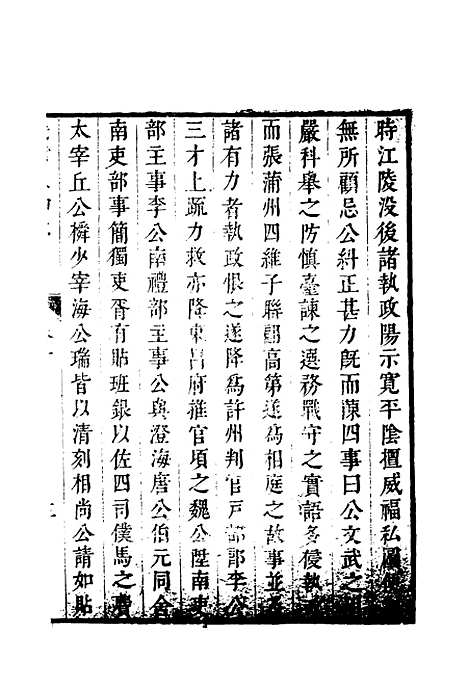 時江陵没後諸執政陽示寛平陰擅威福私屬
無所顧忌公糾正甚力旣而䟽四事曰公文武之
嚴科舉之防慎臺諫之選務戰守之實語多侵執
而張蒲州四維子聯翩高第遂爲相庭之故事並
諸有力者執政恨之遂降爲許州判官戸部郎李公
三才上疏力救亦降東昌府推官頃之魏公陞南吏
部主事李公南禮部主事公與澄海唐公伯元同舍
南吏部事簡獨吏胥有貼班銀以佐四司僕馬之費
太宰丘公橓少宰海公瑞皆以清刻相尚公請如貼